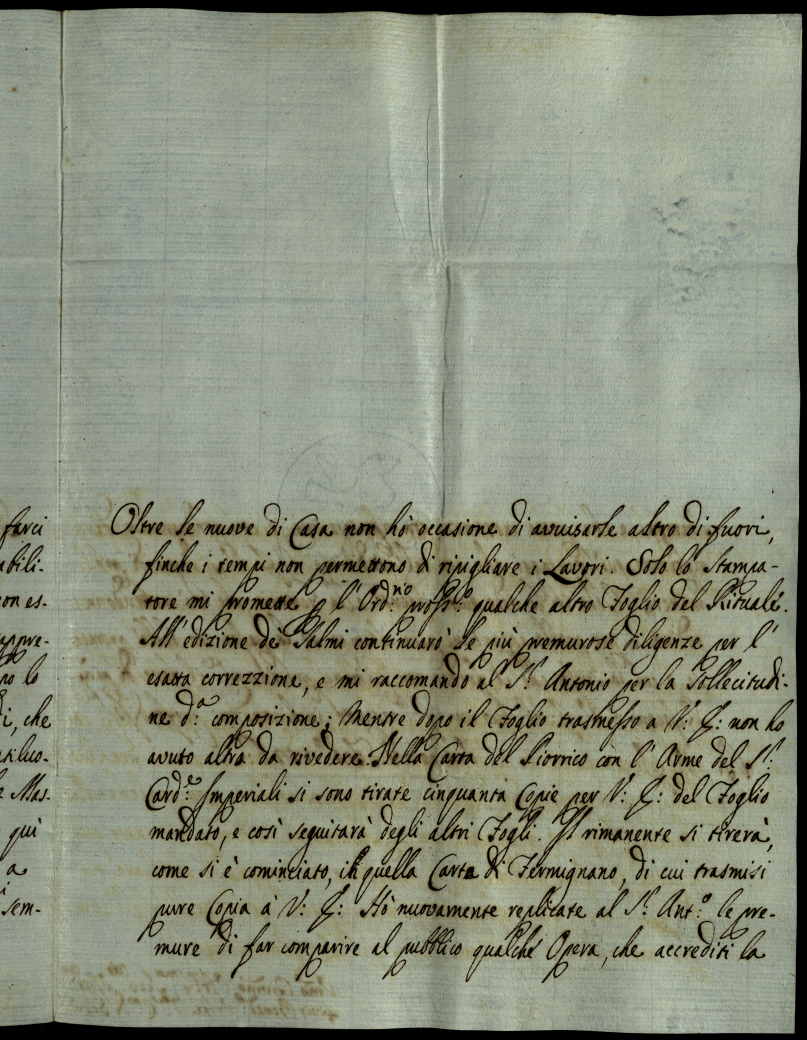 farci
abili-
con es-
appre-
no lo
di, che
e Mas-
quì
a
sem-
Oltre le nuove di Casa non hò occasione di avvisarle altro di fuori,
finche i tempi non permettono di ripigliare i Lavori. Solo lo Stampa-
tore mi promette p l'Ord:rio pross:o qualche altro Foglio del Rituale.
All'edizione de Salmi continuarò le più premurose diligenze per l'
esatta correzzione, e mi raccomando al S.r Antonio per la Sollecitudi-
ne d:a composizione; Mentre dopo il Foglio trasmesso a V: E: non ho
avuto altra da rivedere. Nella Carta del Piorrico con l'Arme del S.r
Card:e Imperiali si sono tirate cinquanta Copie per V: E: del Foglio
mandato, e così seguitarà degli altri Fogli. Il rimanente si tirerà,
come si è cominciato, in quella Carta di Fermignano, di cui trasmisi
pure Copia à V: E: Hò nuovamente replicate al S.r Ant:o le pre-
mure di far comparire al pubblico qualche Opera, che accrediti la